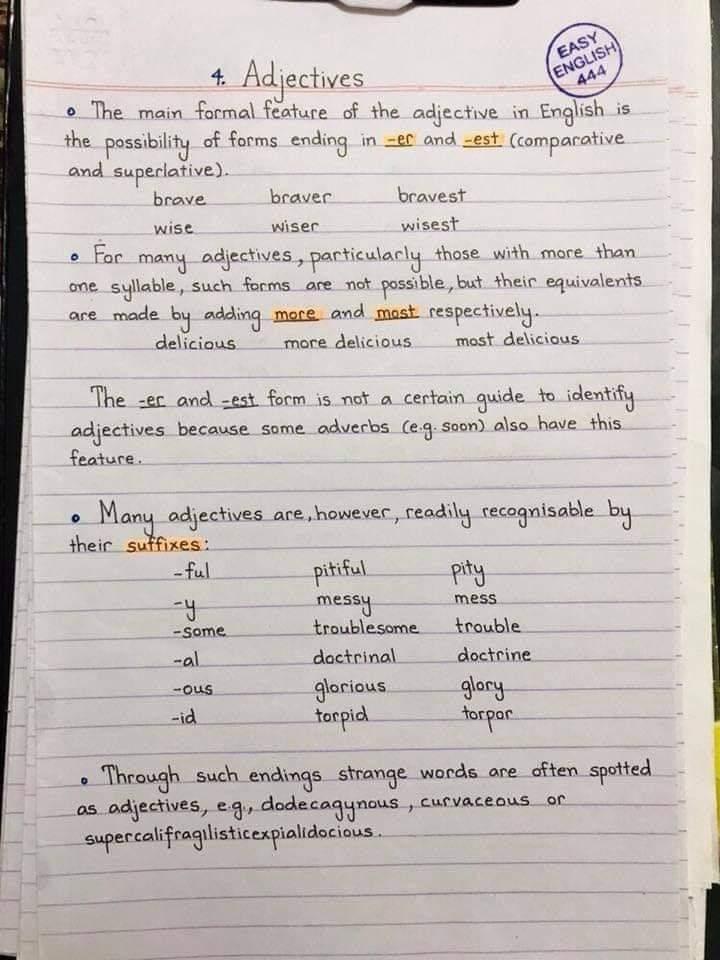 EASY
ENGLISH
444
4. Adjectives
• The main formal feature of the adjective in English is
the possibility of forms ending in -er and -est (comparative
and superlative).
brave braver bravest
wise wiser wisest
• For many adjectives, particularly those with more than
one syllable, such forms are not possible, but their equivalents
are made by adding more and most respectively.
delicious more delicious most delicious
The -er and -est form is not a certain guide to identify
adjectives because some adverbs (e.g. soon) also have this
feature.
• Many adjectives are, however, readily recognisable by
their suffixes:
-ful pitiful pity
-y messy mess
-some troublesome trouble
-al doctrinal doctrine
-ous glorious glory
-id torpid torpor
• Through such endings strange words are often spotted
as adjectives, e.g., dodecagynous, curvaceous or
supercalifragilisticexpialidocious.